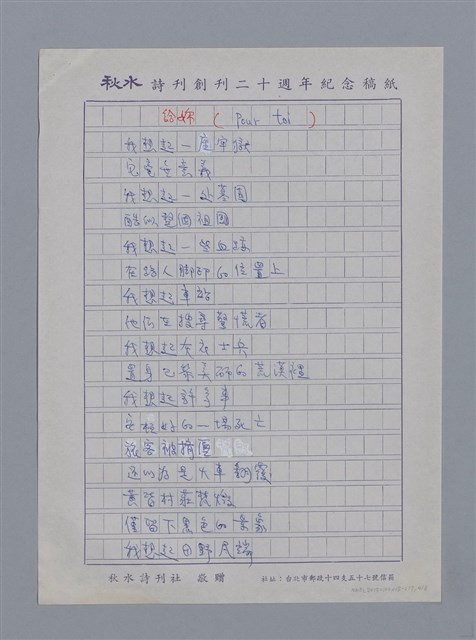 秋水 詩刊創刊二十週年紀念稿紙
給妳 ( Pour toi )
我想起一座牢獄
它毫無意義
我想起一处墓園
酷似整個祖國
我想起一些血跡
在路人脚印的位置上
我想起車站
他們在搜尋驚慌者
我想起灰衣士兵
置身巴黎美丽的荒漠裡
我想起許多事
安排好的一場死亡
旅客被擠壓
还以为是火車翻覆
黄昏村莊焚燬
僅留下黑色的景象
我想起田野尽端
秋水詩刊社 敬贈
社址：台北市郵政十四支五十七號信箱